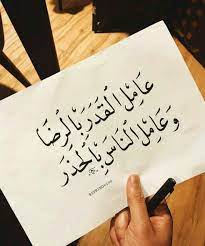 عَامِلِ القَدَرَ بِالرِّضَا
وَعَامِلِ النَّاسَ بِالْحَذَرِ